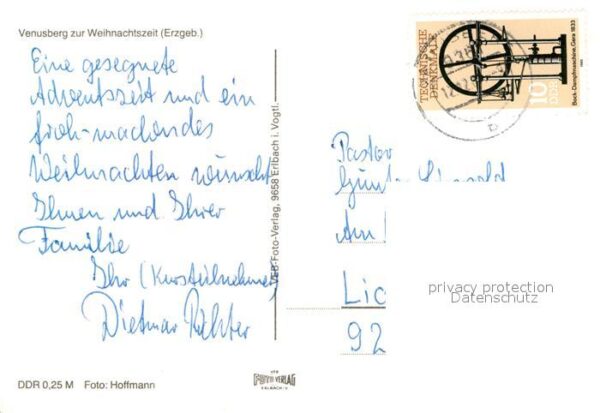 Venusberg zur Weihnachtszeit (Erzgeb.)
Eine gesegnete
Adventszeit und ein
froh-machendes
Weihnachten wünscht
Ihnen und Ihrer
Familie
Ihr (Kursteilnehmer)
Dietmar Richter
DDR 0,25 M Foto: Hoffmann
VEB-Foto-Verlag, 9658 Erlbach i. Vogtl.
FOTO VERLAG
ERLBACH/V
TECHNISCHE
DENKMALE
10
DDR
Bock-Dampfmaschine, Gera 1833
Pastor
Am
Lic
92
privacy protection
Datenschutz